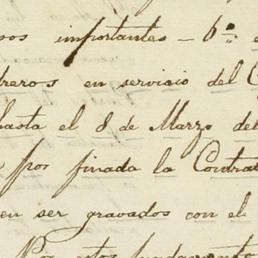 sos importantes — 6º
breros en servicio del C
hasta el 8 de Marzo del
por finada la Contrat
en ser gravados con el
Por estos fundamento